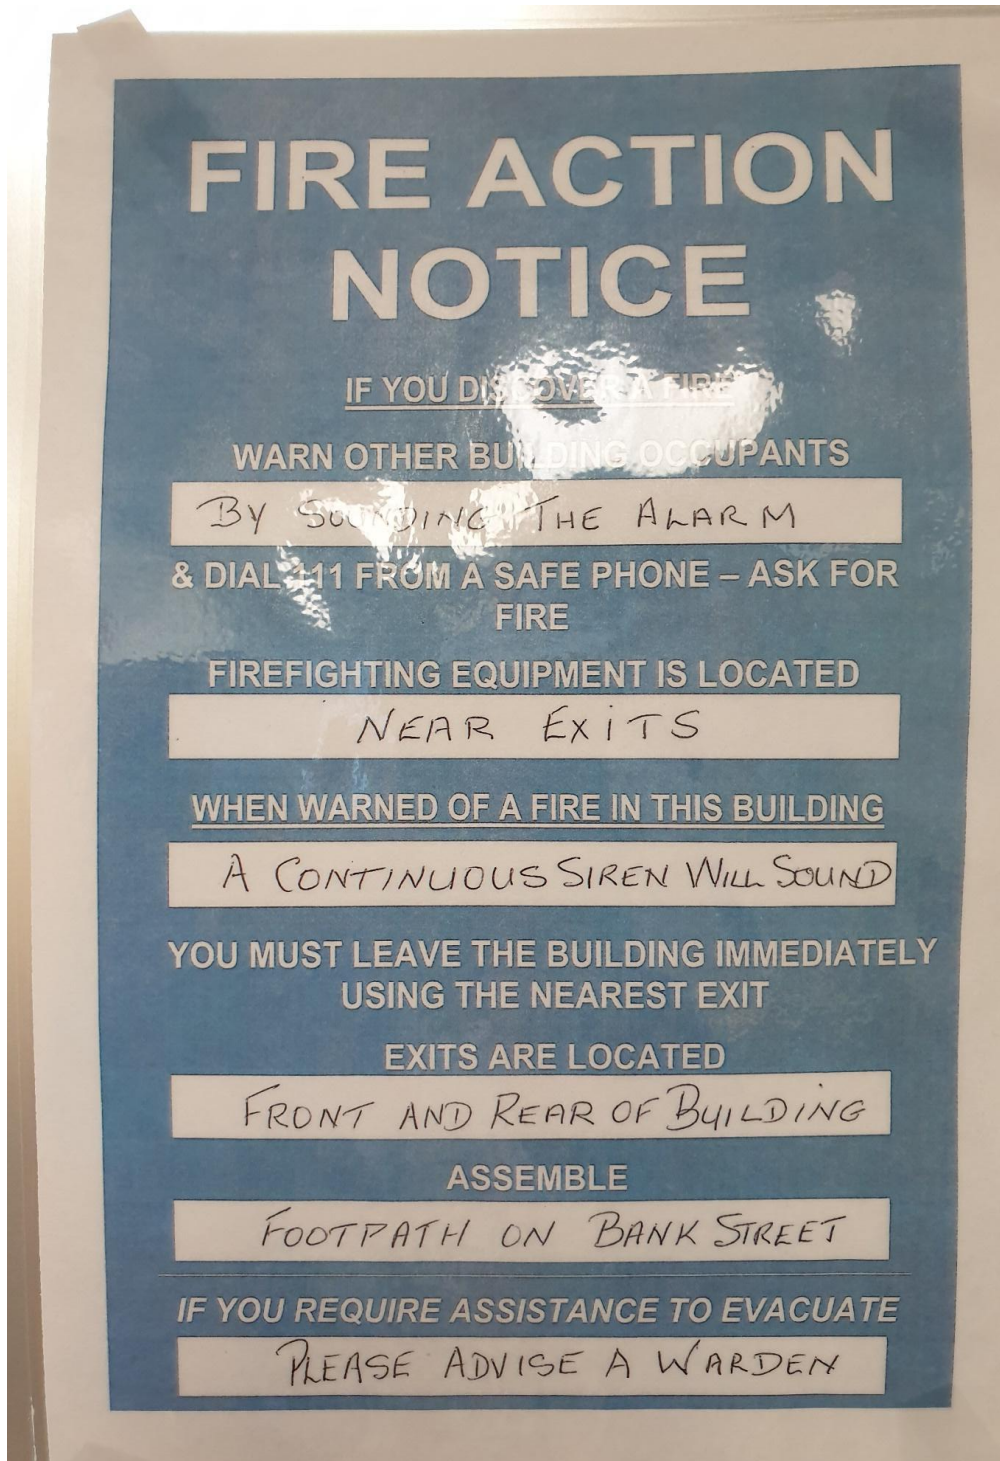 FIRE ACTION
NOTICE
IF YOU DISCOVER A FIRE
WARN OTHER BUILDING OCCUPANTS
BY SOUNDING THE ALARM
& DIAL 111 FROM A SAFE PHONE – ASK FOR
FIRE
FIREFIGHTING EQUIPMENT IS LOCATED
NEAR EXITS
WHEN WARNED OF A FIRE IN THIS BUILDING
A CONTINUOUS SIREN WILL SOUND
YOU MUST LEAVE THE BUILDING IMMEDIATELY
USING THE NEAREST EXIT
EXITS ARE LOCATED
FRONT AND REAR OF BUILDING
ASSEMBLE
FOOTPATH ON BANK STREET
IF YOU REQUIRE ASSISTANCE TO EVACUATE
PLEASE ADVISE A WARDEN